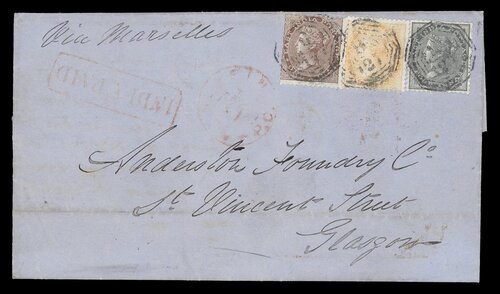 Via Marseilles
INDIA PAID
Anderston Foundry Co
St Vincent Street
Glasgow